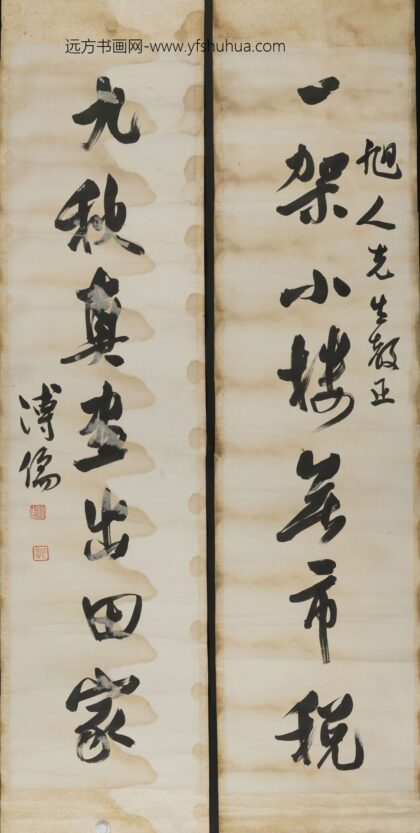 远方书画网-www.yfshuhua.com
旭人先生教正
一架小樓無市税
九秋真畫出田家
溥儒